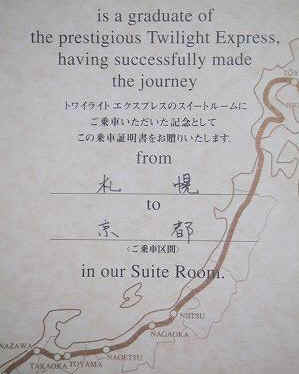 is a graduate of
the prestigious Twilight Express,
having successfully made
the journey
トワイライトエクスプレスのスイートルームに
ご乗車いただいた記念として
この乗車証明書をお贈りいたします.
from
札幌
to
京都
〈ご乗車区間〉
in our Suite Room.
NIITSU
NAGAOKA
NAOETSU
TOYAMA
TAKAOKA
NAZAWA